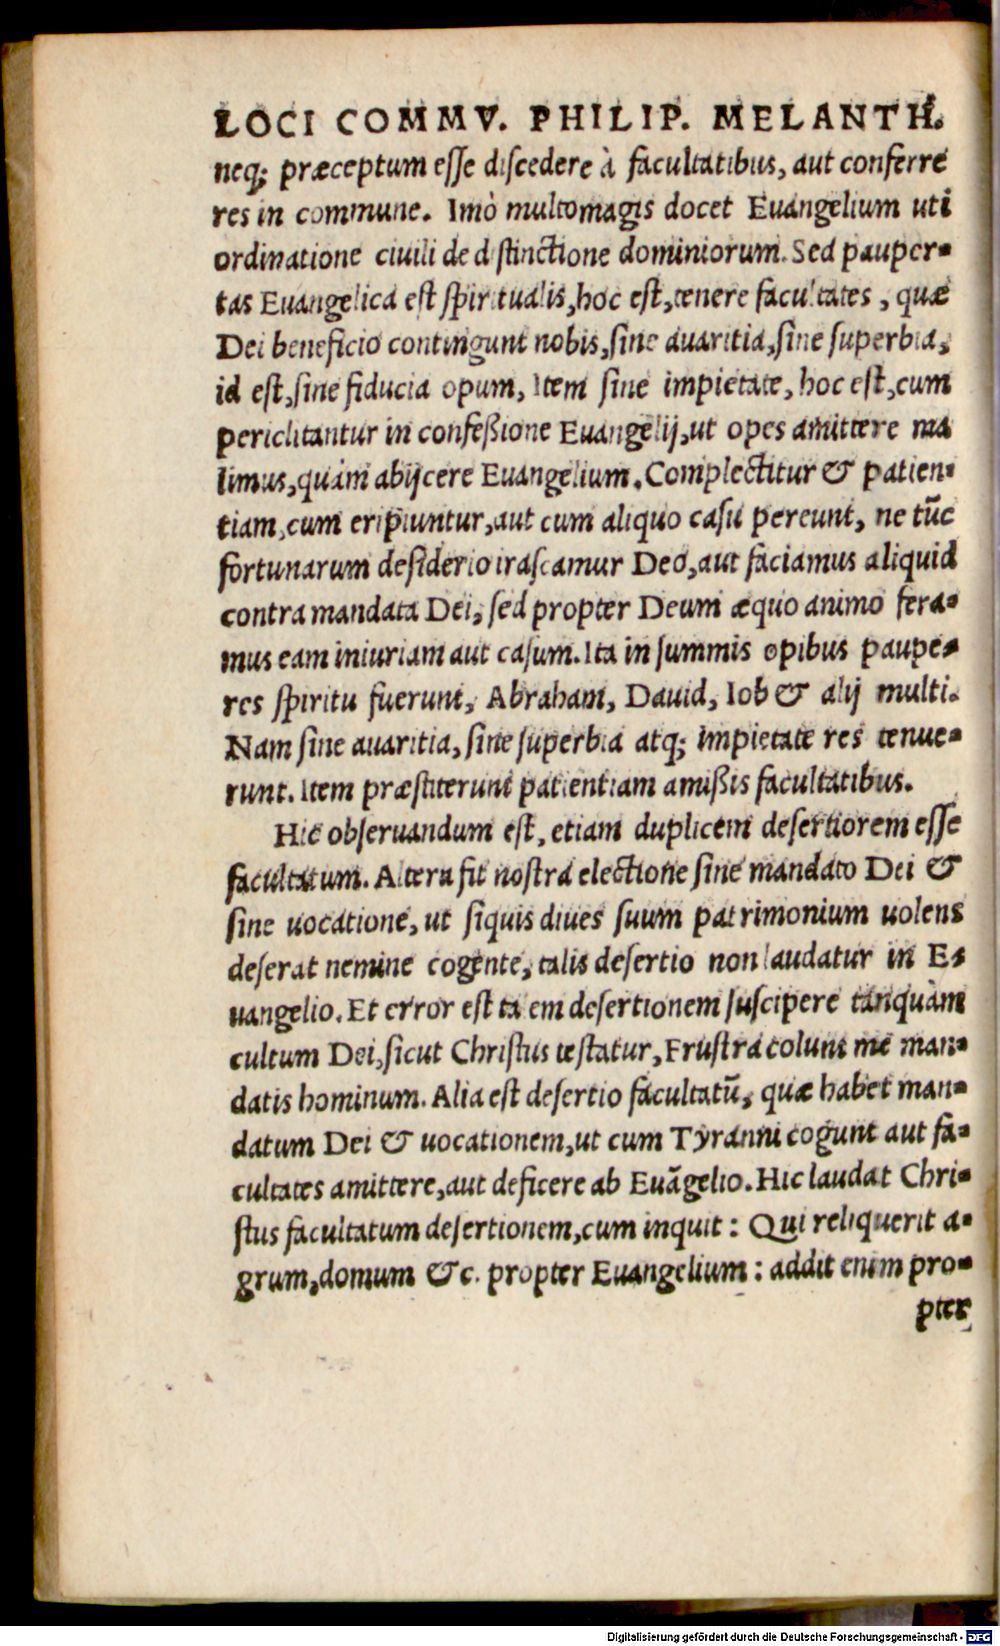 LOCI COMMV. PHILIP. MELANTH.
neq; præceptum esse discedere à facultatibus, aut conferre
res in commune. Imò multomagis docet Euangelium uti
ordinatione ciuili de distinctione dominiorum. Sed pauper-
tas Euangelica est spiritualis, hoc est, tenere facultates, quæ
Dei beneficio contingunt nobis, sine auaritia, sine superbia,
id est, sine fiducia opum, Item sine impietate, hoc est, cum
periclitantur in confeßione Euangelij, ut opes amittere ma
limus, quàm abijcere Euangelium. Complectitur & patien-
tiam, cum eripiuntur, aut cum aliquo casu pereunt, ne tūc
fortunarum desiderio irascamur Deo, aut faciamus aliquid
contra mandata Dei, sed propter Deum æquo animo fera-
mus eam iniuriam aut casum. Ita in summis opibus paupe-
res spiritu fuerunt, Abraham, Dauid, Iob & alij multi.
Nam sine auaritia, sine superbia atq; impietate res tenue-
runt. Item præstiterunt patientiam amißis facultatibus.
Hic obseruandum est, etiam duplicem desertiorem esse
facultatum. Altera fit nostra electione sine mandato Dei &
sine uocatione, ut siquis diues suum patrimonium uolens
deserat nemine cogente, talis desertio non laudatur in E-
uangelio. Et error est talem desertionem suscipere tanquàm
cultum Dei, sicut Christus testatur, Frustra colunt me man-
datis hominum. Alia est desertio facultatū, quæ habet man-
datum Dei & uocationem, ut cum Tyranni cogunt aut fa-
cultates amittere, aut deficere ab Euāgelio. Hic laudat Chri-
stus facultatum desertionem, cum inquit: Qui reliquerit a-
grum, domum &c. propter Euangelium: addit enim pro-
pter
Digitalisierung gefördert durch die Deutsche Forschungsgemeinschaft - DFG